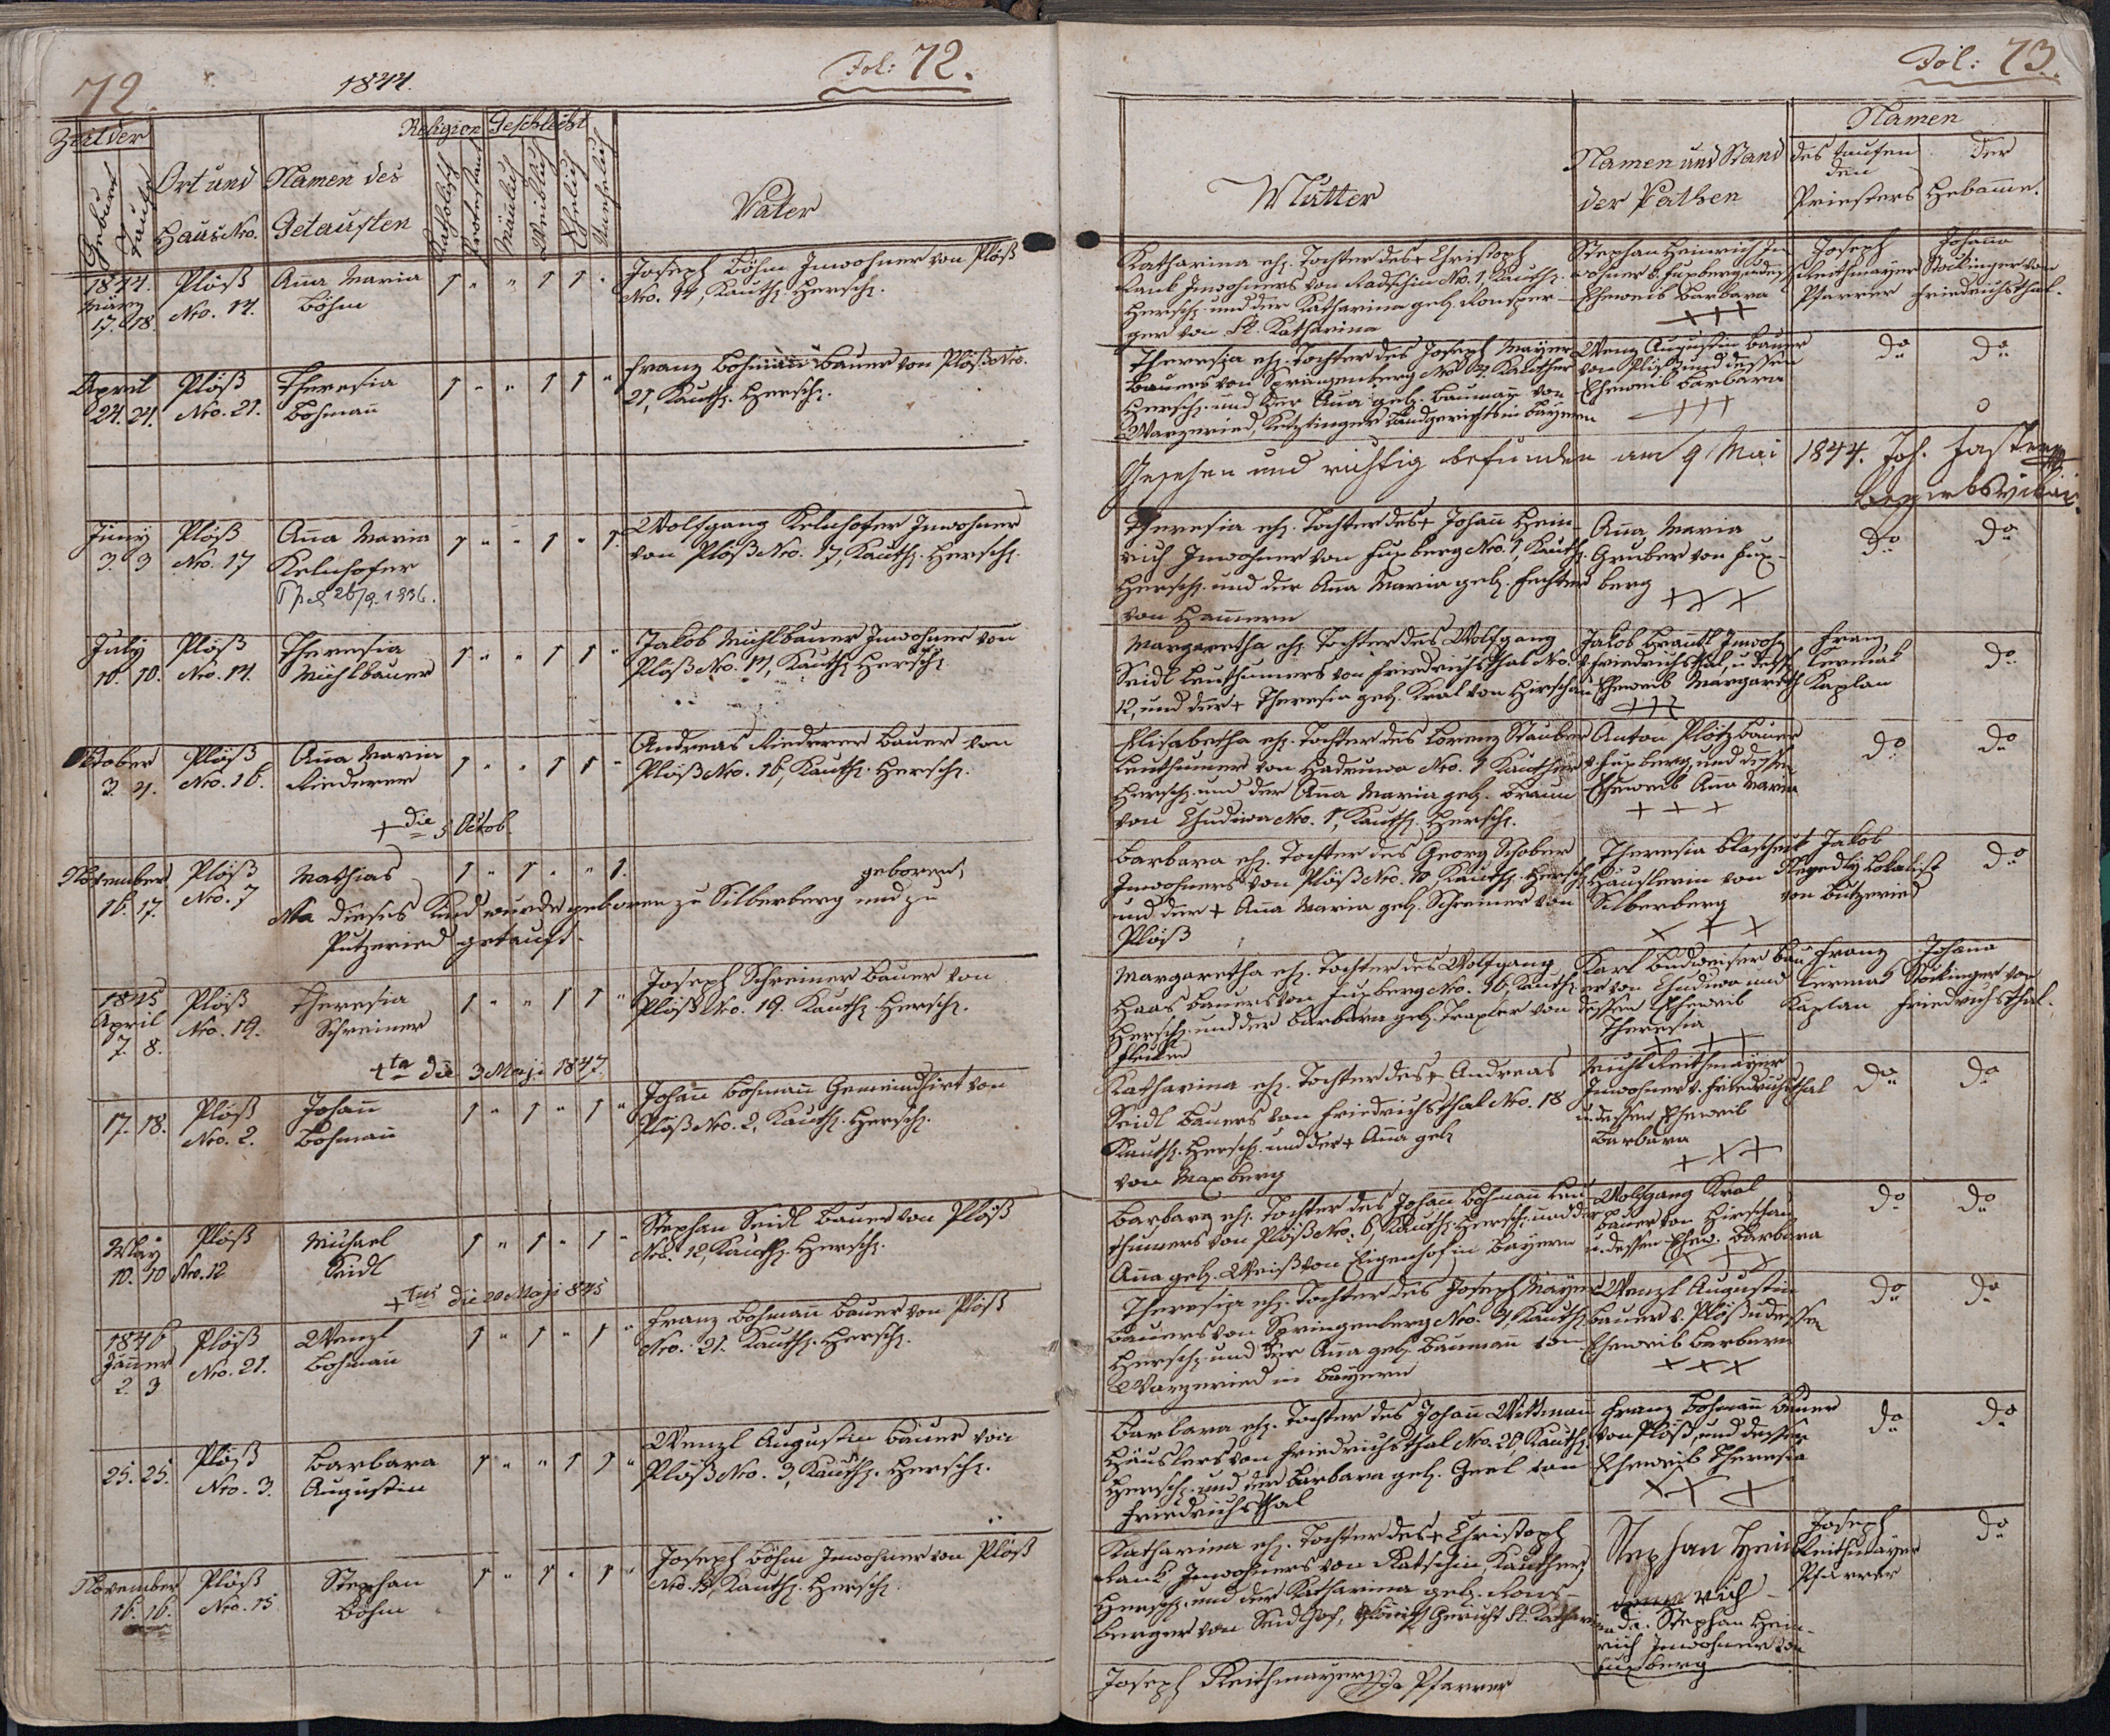 72.
1844.
Fol: 72.
Zeit der
Religion
Geschlecht
Geburt
Taufe
Ort und
Haus Nro.
Namen des
Getauften
Katholisch
Protestant
Mänlich
Weiblich
Ehelich
Unehelich
Vater
1844.
März
17. 18.
Plöß
Nro. 14.
Aña Maria
Böhm
1 " " 1 1 "
Joseph Böhm Inwohner von Plöß
Nro. 14, Kauth. Hersch.
April
24. 24.
Plöß
Nro. 21.
Theresia
Bohmañ
1 " " 1 1 "
Franz Bohmañ Bauer von Plöß Nro.
21, Kauth. Hersch.
Juny
3. 3
Plöß
Nro. 17
Aña Maria
Kelnhofer
26/9. 1936.
1 " " 1 " 1.
Wolfgang Kelnhofer Inwohner
von Plöß Nro. 17, Kauth. Hersch.
July
10. 10.
Plöß
Nro. 14.
Theresia
Mühlbauer
1 " " 1 1 "
Jakob Mühlbauer Inwohner von
Plöß No. 14, Kauth. Hersch.
Oktober
3. 4.
Plöß
Nro. 16.
Aña Maria
Riederer
+ die 5 Octob.
1 " " 1 1 "
Andreas Riederer Bauer von
Plöß Nro. 16, Kauth. Hersch.
November
16. 17.
Plöß
Nro. 7
Mathias
1 " 1 " " 1.
geboren,
Na dieses Kind wurde geboren zu Silberberg und zu
Putzeried getauft.
1845
April
7. 8.
Plöß
Nro. 19.
Theresia
Schreiner
+ta die 3 Maji 1847.
1 " " 1 1 "
Joseph Schreiner Bauer von
Plöß Nro. 19. Kauth. Hersch.
17. 18.
Plöß
Nro. 2.
Johañ
Bohmañ
1 " 1 " 1 "
Johañ Bohmañ Gemeindhirt von
Plöß Nro. 2, Kauth. Hersch.
May
10. 10
Plöß
Nro. 12
Michael
Seidl
+tus die 20 Maji 845
1 " 1 " 1 "
Stephan Seidl Bauer von Plöß
Nro. 12, Kauth. Hersch.
1846
Jäñer
2. 3
Plöß
Nro. 21.
Wenzl
Bohmañ
1 " 1 " 1 "
Franz Bohmañ Bauer von Plöß
Nro. 21. Kauth. Hersch.
25. 25.
Plöß
Nro. 3.
Barbara
Augustin
1 " " 1 1 "
Wenzl Augustin Bauer von
Plöß Nro. 3, Kauth. Hersch.
November
16. 16.
Plöß
Nro. 15
Stephan
Böhm
1 " 1 " 1 "
Joseph Böhm Inwohner von Plöß
Kauth. Hersch.
Fol: 73.
Mutter
Namen und Stand
der Pathen
Namen
des taufen
den
Priesters
der
Hebam̄e.
Katharina eh. Tochter des + Christoph
Rank Inwohners von Radschin No. 1, Kauth.
Hersch. und der Katharina geb. Ronsper-
ger von St. Katharina
Stephan Heinrich In-
wohner v. Fuxberg u dess
Eheweib Barbara
+++
Joseph
Reithmayer
Pfarrer
Johañа
Stöckinger von
Friedrichsthal.
Theresia eh. Tochter des Joseph Mayer
Bauers von Springenberg No 4. Kauther
Hersch. und der Aña geb. Baumañ von
Warzenried, Kötztinger Landgerichts in Bayern
Wenz Augustin Bauer
von Plöß und dessen
Eheweib Barbara
+++
do
do
Gesehen und richtig befunden am 9 Mai 1844. Joh.
Bezirksvikär.
Theresia eh. Tochter des + Johañ Hein-
rich Inwohner von Fuxberg Nro. 1, Kauth.
Hersch. und der Aña Maria geb. Fechter
von Ham̄ern
Aña Maria
Gruber von Fux-
berg
+++
do
do
Margaretha eh. Tochter des Wolfgang
Seidl Leuthumers von Friedrichsthal No.
12, und der + Theresia geb. Kral von Hirschau
Jakob Inwoh.
v. Friedrichsthal, u dess.
Eheweib Margareth
+++
Franz
Čermák
Kaplan
do
Elisabetha eh. Tochter des Lorenz Stauber
Leuthumer von Hadruwa Nro. 1 Kauther
Hersch. und der Aña Maria geb. Braun
von Chudiwa Nro. 1, Kauth. Hersch.
Anton Plötz Bauer
v. Fuxberg, und dessen
Eheweib Aña Maria
+ + +
do
do
Barbara eh. Tochter des Georg Schober
Inwohners von Plöß Nro. 10, Kauth. Hersch
und der + Aña Maria geb. Schreiner von
Plöß
Theresia
Häuslerin von
Silberberg
+ + +
Jakob
Regedly Lokalist
von Putzeried
do
Margaretha eh. Tochter des Wolfgang
Haas Bauers von Fuxberg No. 16, Kauth.
Hersch. und der Barbara geb. Traxler von
Karl Budweiser Bau-
er von Chudiwa und
dessen Eheweib
Theresia
+ + +
Franz
Čermák
Kaplan
Johaña
Stöckinger von
Friedrichsthal.
Katharina eh. Tochter des + Andreas
Seidl Bauers von Friedrichsthal Nro. 18
Kauth. Hersch. und der + Aña geb
von Maxberg
Michl Reithmayer
Inwohner v. Friedrichsthal
u. dessen Eheweib
Barbara
+++
do
do
Barbara eh. Tochter des Johañ Bohmañ Leu-
thumers von Plöß Nro. 6, Kauth. Hersch. und der
Aña geb. Weiß von Eigenhof in Bayern
Wolfgang Kral
Bauer von Hirschau
u. dessen Ehew. Barbara
+ + +
do
do
Theresia eh. Tochter des Joseph Mayer
Bauers von Springenberg Nro. 4, Kauth.
Hersch. und der Aña geb. Baumañ von
Warzenried in Bayern
Wenzl Augustin
Bauer v. Plöß u dessen
Eheweib Barbara
+++
do
do
Barbara eh. Tochter des Johañ Wittmañ
Häuslers von Friedrichsthal No. 20, Kauth.
Hersch. und der Barbara geb. Geel von
Friedrichsthal
Franz Bohmañ Bauer
von Plöß, und dessen
Eheweib Theresia
+++
do
do
Katharina eh. Tochter des + Christoph
Rank Inwohners von Ratschin, Kauther
Hersch. und der Katharina geb. Rons-
berger von Seidlhof, Gericht St. Katharina
Stephan Hein-
rich
d.i. Stephan Hein-
rich Inwohner von
Fuxberg
Joseph
Reithmayer
Pfarrer
do
Joseph Reithmayer Pfarrer